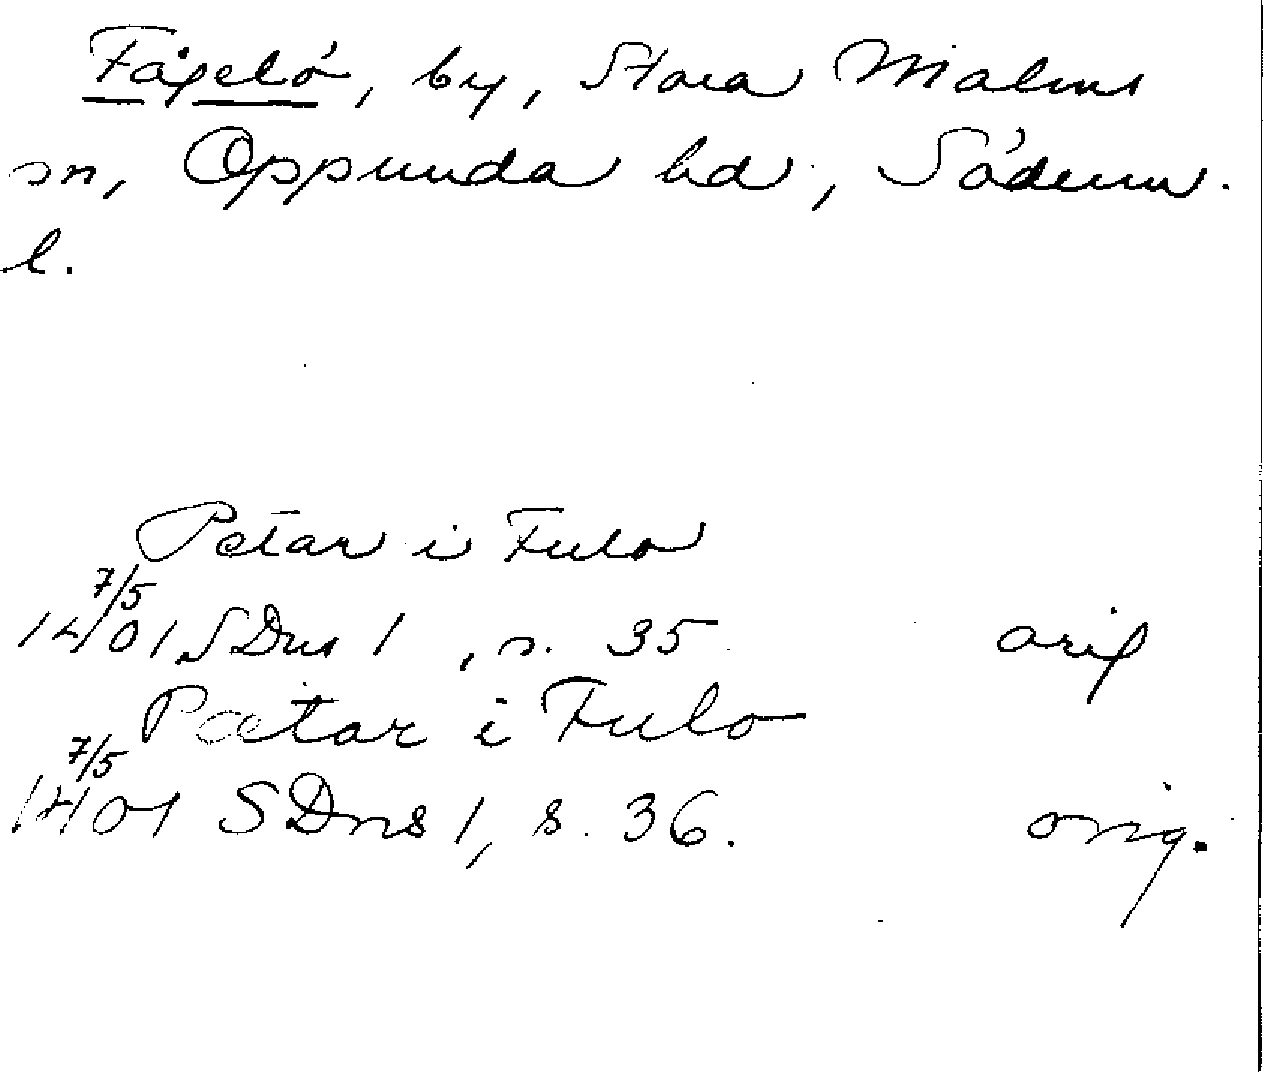 Fågelö, by, Stora Malms
sn, Oppunda hd, Söderm.
l.
Petar i Fulo
7/5
1401 SDns 1, s. 35 orig
Pætar i Fulo
7/5
1401 SDns 1, s. 36. orig.